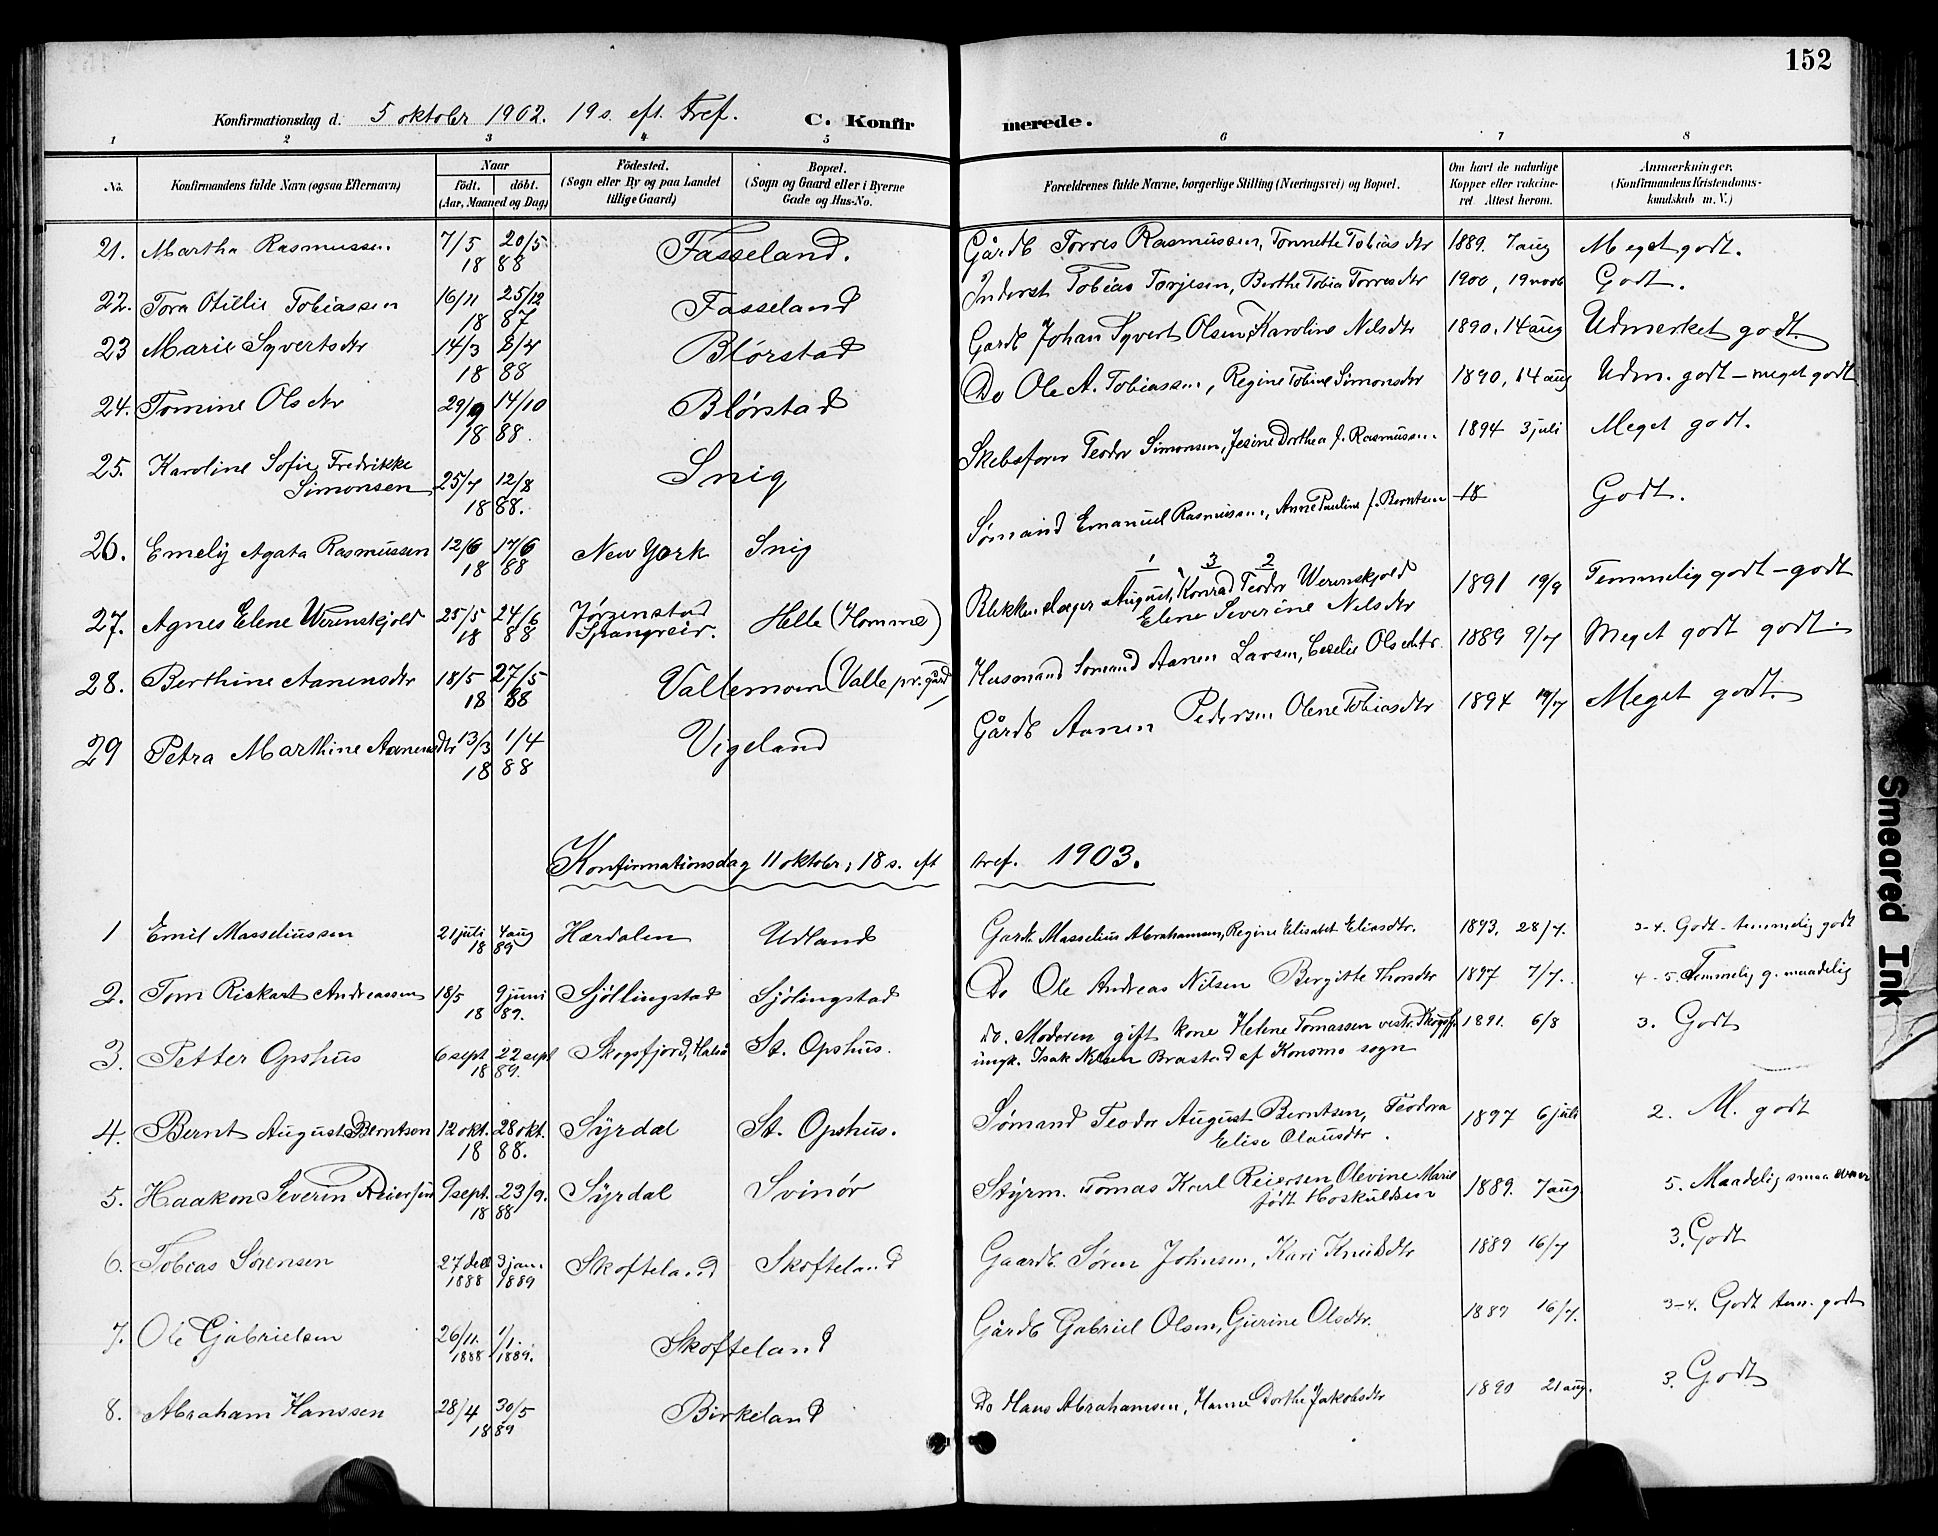 152
Konfirmationsdag d. 5 oktober 1902. 19 s. eft. tref. C. Konfirmerede.
1 2 3 4 5 6 7 8
No. Konfirmandens fulde Navn (ogsaa Efternavn) Naar født. døbt. (Aar, Maaned og Dag) Fødested. (Sogn eller By og paa Landet tillige Gaard) Bopæl. (Sogn og Gaard eller i Byerne Gade og Hus-No. Forældrenes fulde Navne, borgerlige Stilling (Næringsvei) og Bopæl. Om havt de naturlige Kopper eller vakcineret Attest herom. Anmærkninger. (Konfirmandens Kristendomskundskab m. V.)
21. Martha Rasmussen 7/5 20/5 18 88 Fasseland. Gårdb Torres Rasmussen, Tonnette Tobiasdtr 1889. 7 aug Meget godt.
22. Tora Otillie Tobiassen 16/11 25/12 18 87 Fasseland Inderst Tobias Torjesen, Berthe Tobia Torresdtr 1900, 19 novb Godt.
23 Marie Syvertsdtr 14/3 2/4 18 88 Blørstad Gardb Johan Syvert Olsen, Karoline Nilsdtr 1890, 14 aug Udmerket godt.
24. Tomine Olsdtr 29/9 14/10 18 88. Blørstad Do Ole A. Tobiassen, Regine Tobine Simonsdtr 1890, 14 aug Udm. godt - meget godt
25. Karoline Sofie Fredrikke Simonsen 25/7 12/8 18 88. Snig Skebsfører Teodor Simonsen, Jesine Dorthea f. Rasmussen. 1894 3 juli Meget godt.
26. Emely Agata Rasmussen 12/6 17/6 18 88 New York Snig Sømand Emanuel Rasmussen, Anne Pauline f. Berntsen 18 Godt.
27. Agnes Elene Werenskjold 25/5 24/6 18 88 Jørgenstad Spangreid. Helle (Homme) Blikkenslager August, Konrad Teodor Werenskjold 1 3 2 Elene Severine Nilsdtr 1891 19/9 Temmelig godt - godt
28. Berthine Aanensdtr 18/5 27/5 18 88 Vallemoen (Valle pr.gård) Husmand Sømand Aanen Larsen, Cecelie Olsdtr. 1889 9/7 Meget godt godt.
29 Petra Marthine Aanensdtr 13/3 1/4 18 88 Vigeland Gårdb Aanen Pedersen Olene Tobiasdtr 1894 19/7 Meget godt.
Konfirmationsdag 11 oktober, 18 s. eft tref. 1903.
1 Emil Masseliussen 21 juli 4 aug 18 89 Hærdalen Udland Gardb Masselius Abrahamsen, Regine Elisabet Eliasdtr. 1893. 28/7. 3-4. Godt - temmelig godt
2. Tom Rickart Andreassen 18/5 9 juni 18 89. Sjöllingstad Sjölingstad Do Ole Andreas Nilsen Bergitte Thorsdtr 1897 7/7. 4-5. Temmelig g. maadelig
3. Petter Opshus 6 sept 22 sept 18 89. Skogsfjord, Halså St. Opshus. do. Moderen gift kone Helene Tomassen vestr. Skogsfj.
ungk. Isak Nilsen Brastad af Konsmo sogn 1891. 6/8 3. Godt
4. Bernt August Berntsen 12 okt. 28 okt. 18 88. Syrdal St. Opshus. Sømand Teodor August Berntsen, Teodora Elise Clausdtr. 1897 6 juli 2. M. godt
5. Haakon Severin Reiersen 9 sept. 23/9. 18 88 Syrdal Svinør Styrm. Tomas Karl Reiersen Olevine Marie født Hoskuldsen 1889. 7 aug. 5. Maadelig smaa evner
6. Tobias Sørensen 27 dec 1888 3 jan. 1889 Skofteland Skofteland Gaardb. Søren Johnsen, Kari Knudsdtr 1889 16/7 3. Godt
7. Ole Gabrielsen 26/11. 1888 1/1 1889. Skofteland Gårdb Gabriel Olsen, Gurine Olsdtr. 1889 16/7. 3-4. Godt tem. godt
8. Abraham Hanssen 28/4 30/5 18 89 Birkeland Do Hans Abrahamsen, Hanne Dorthe Jakobsdtr 1890 21 aug. 3. Godt
Smeared Ink